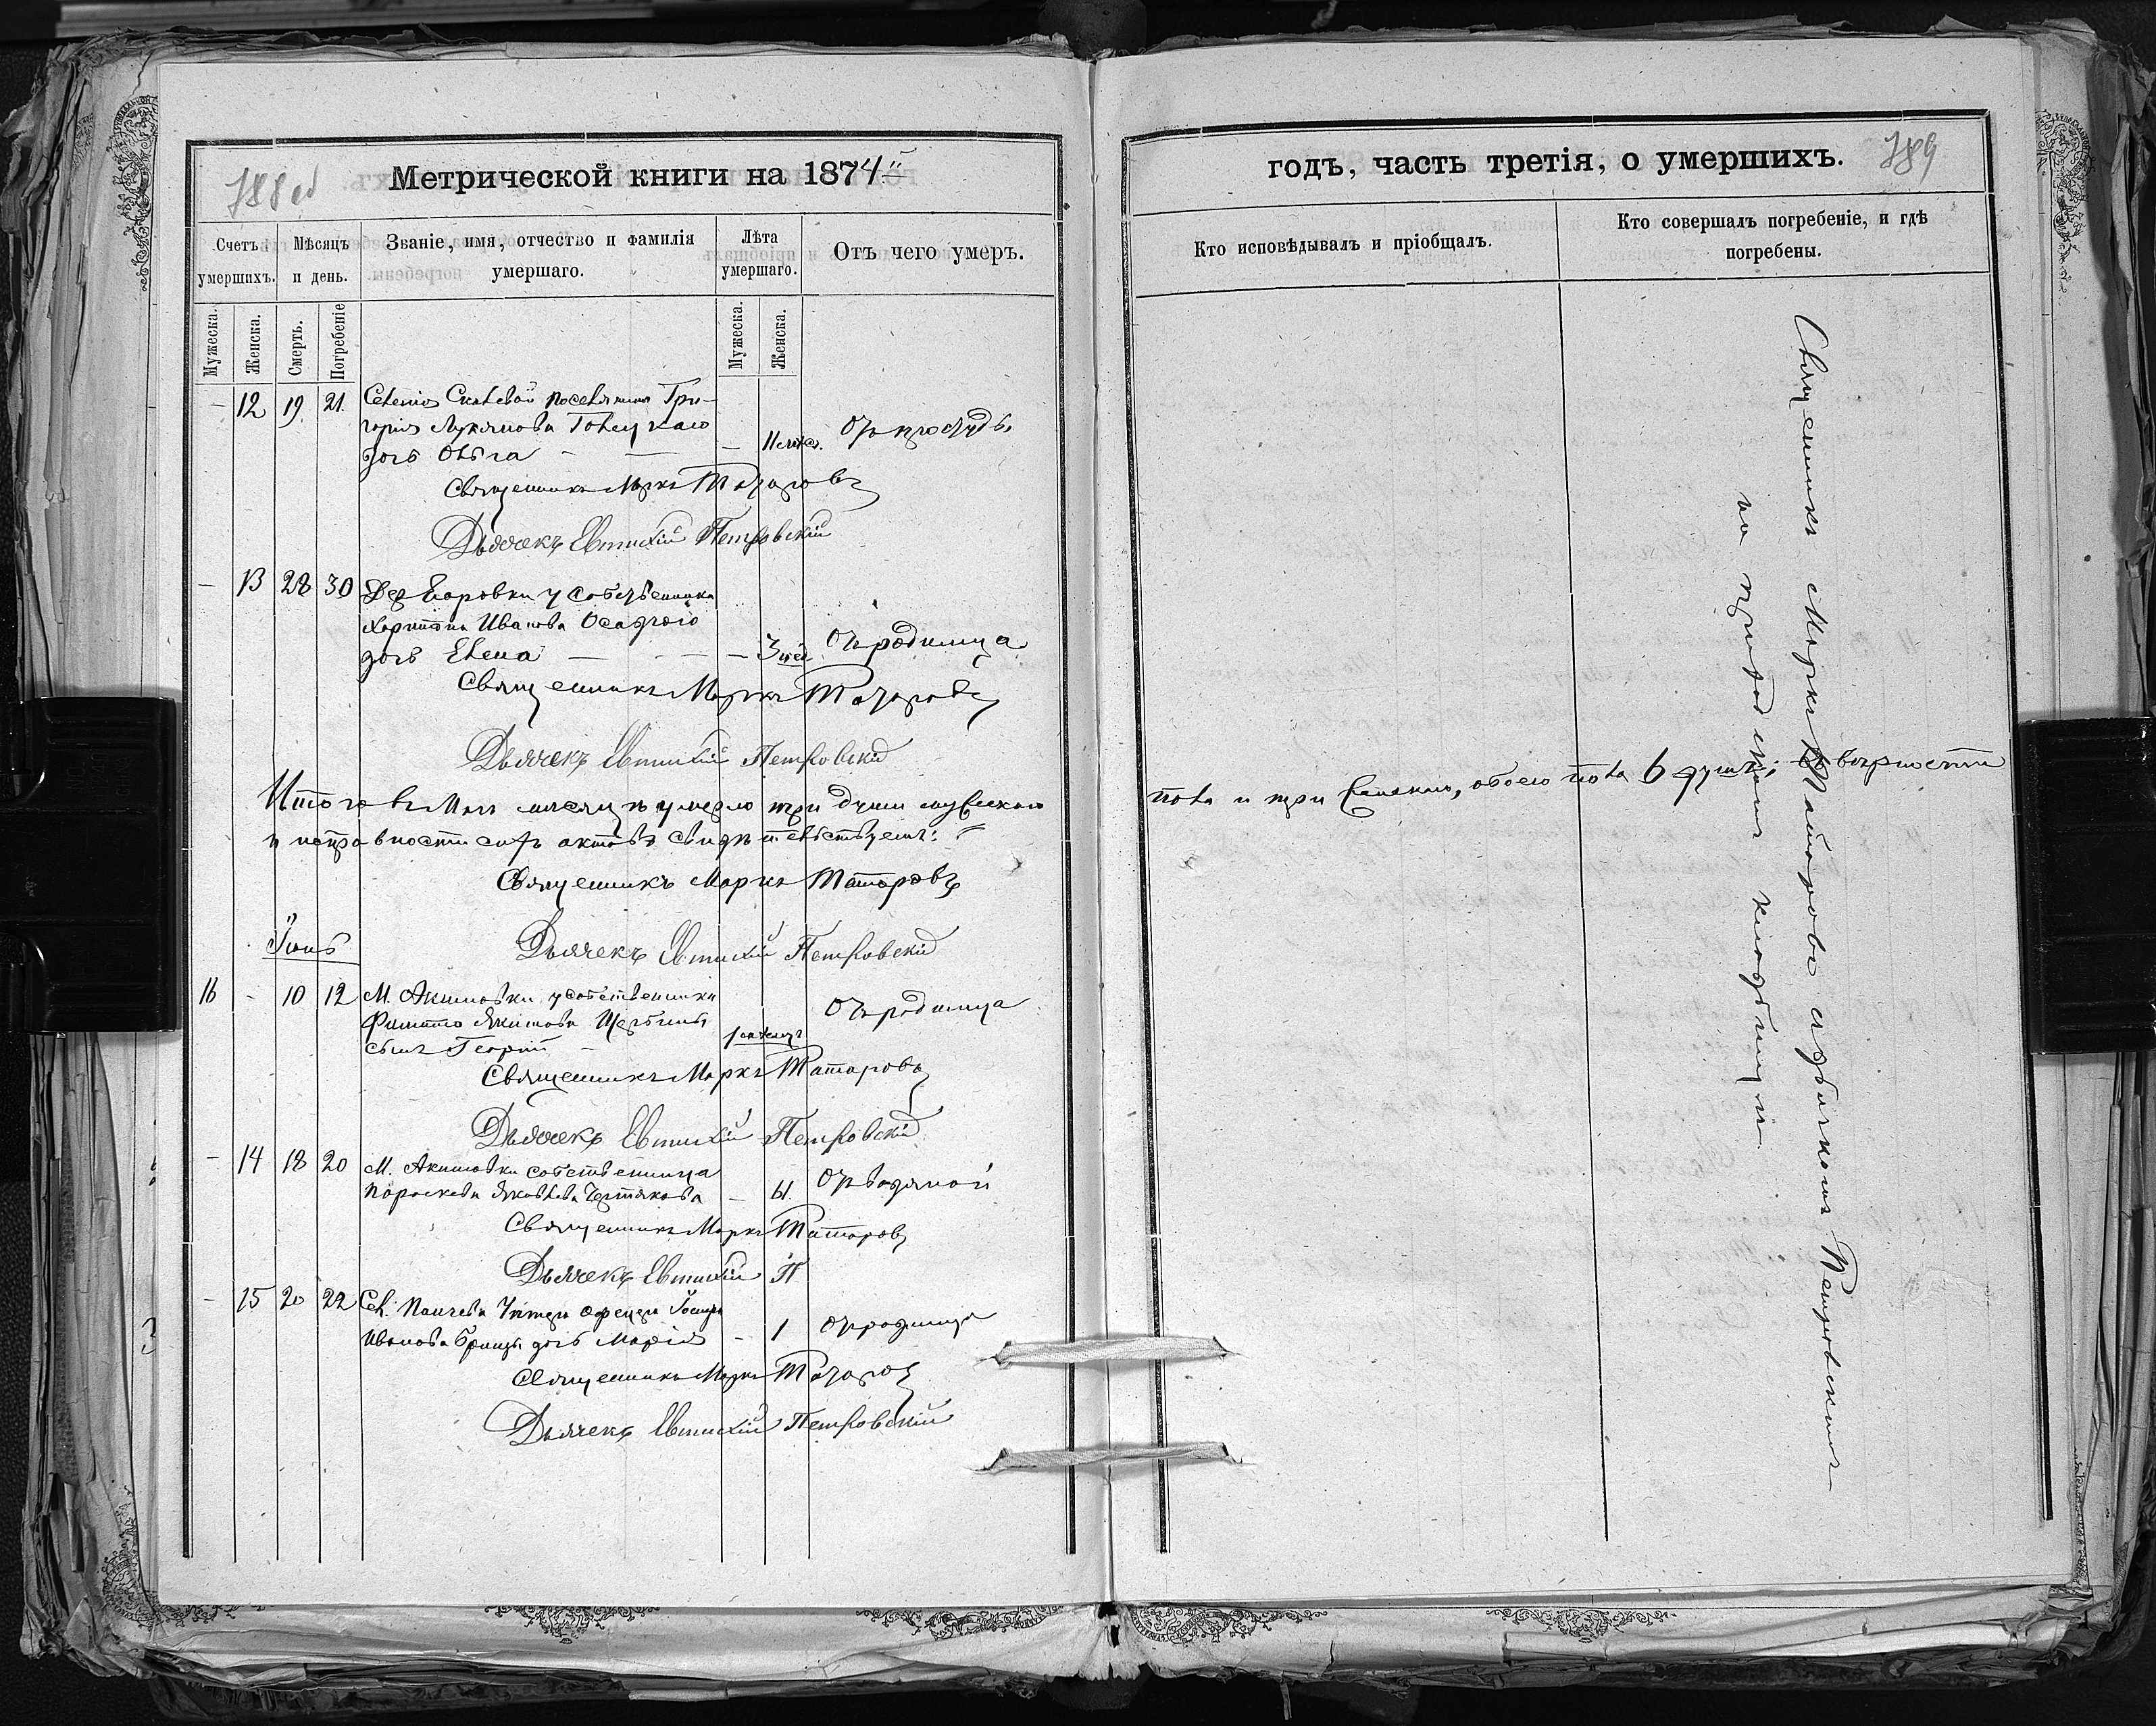 788 об
Метрической книги на 1874й
Счетъ умершихъ.
Мѣсяцъ и день.
Званіе, имя, отчество и фамилія умершаго.
Лѣта умершаго.
Отъ чего умеръ.
Мужеска.
Женска.
Смерть.
Погребеніе
Мужеска.
Женска.
– 12 19 21. Селенія поселянина Гри-
горія Лукянова
дочь Ольга – — – 11 мѣс. отъ простуды
Священникъ Маркъ Татаровъ
Дьячекъ Евтихій Петровскій
– 13 28 30 Дер Боровки у собственника
Харитона Иванова Осадчаго
дочь Елена — – – – 3 нед. отъ родимца
Священникъ Маркъ Татаровъ
Дьячекъ Евтихій Петровскій
Итого въ Маѣ месяцѣ умерло три души мужескаго
и исправности сихъ актовъ свидѣтельствуемъ:
Священникъ Маркъ Татаровъ
Дьячекъ Евтихій Петровскій
Іюнь
16 – 10 12 М. Акимовки у собственника
Филиппа Якимова
сынъ Георгій – отъ родимца
Священникъ Маркъ Татаровъ
Дьячекъ Евтихій Петровскій
– 14 18 20 М. Акимовки собственница
Параскева Яковлева Черткова – 61. отъ водяной
Священникъ Маркъ Татаровъ
Дьячекъ Евтихій П
– 15 20 22 Сел. Унтеръ офицера
Иванова дочь Марія – 1 отъ родимца
Священникъ Маркъ Татаровъ
Дьячекъ Евтихій Петровскій
годъ, часть третія, о умершихъ.
789
Кто исповѣдывалъ и пріобщалъ.
Кто совершалъ погребеніе, и гдѣ погребены.
пола и три женскаго, обоего пола 6 душъ;
Священникъ Маркъ Татаровъ съ дьячкомъ Петровскимъ
на приходскомъ кладбищѣ